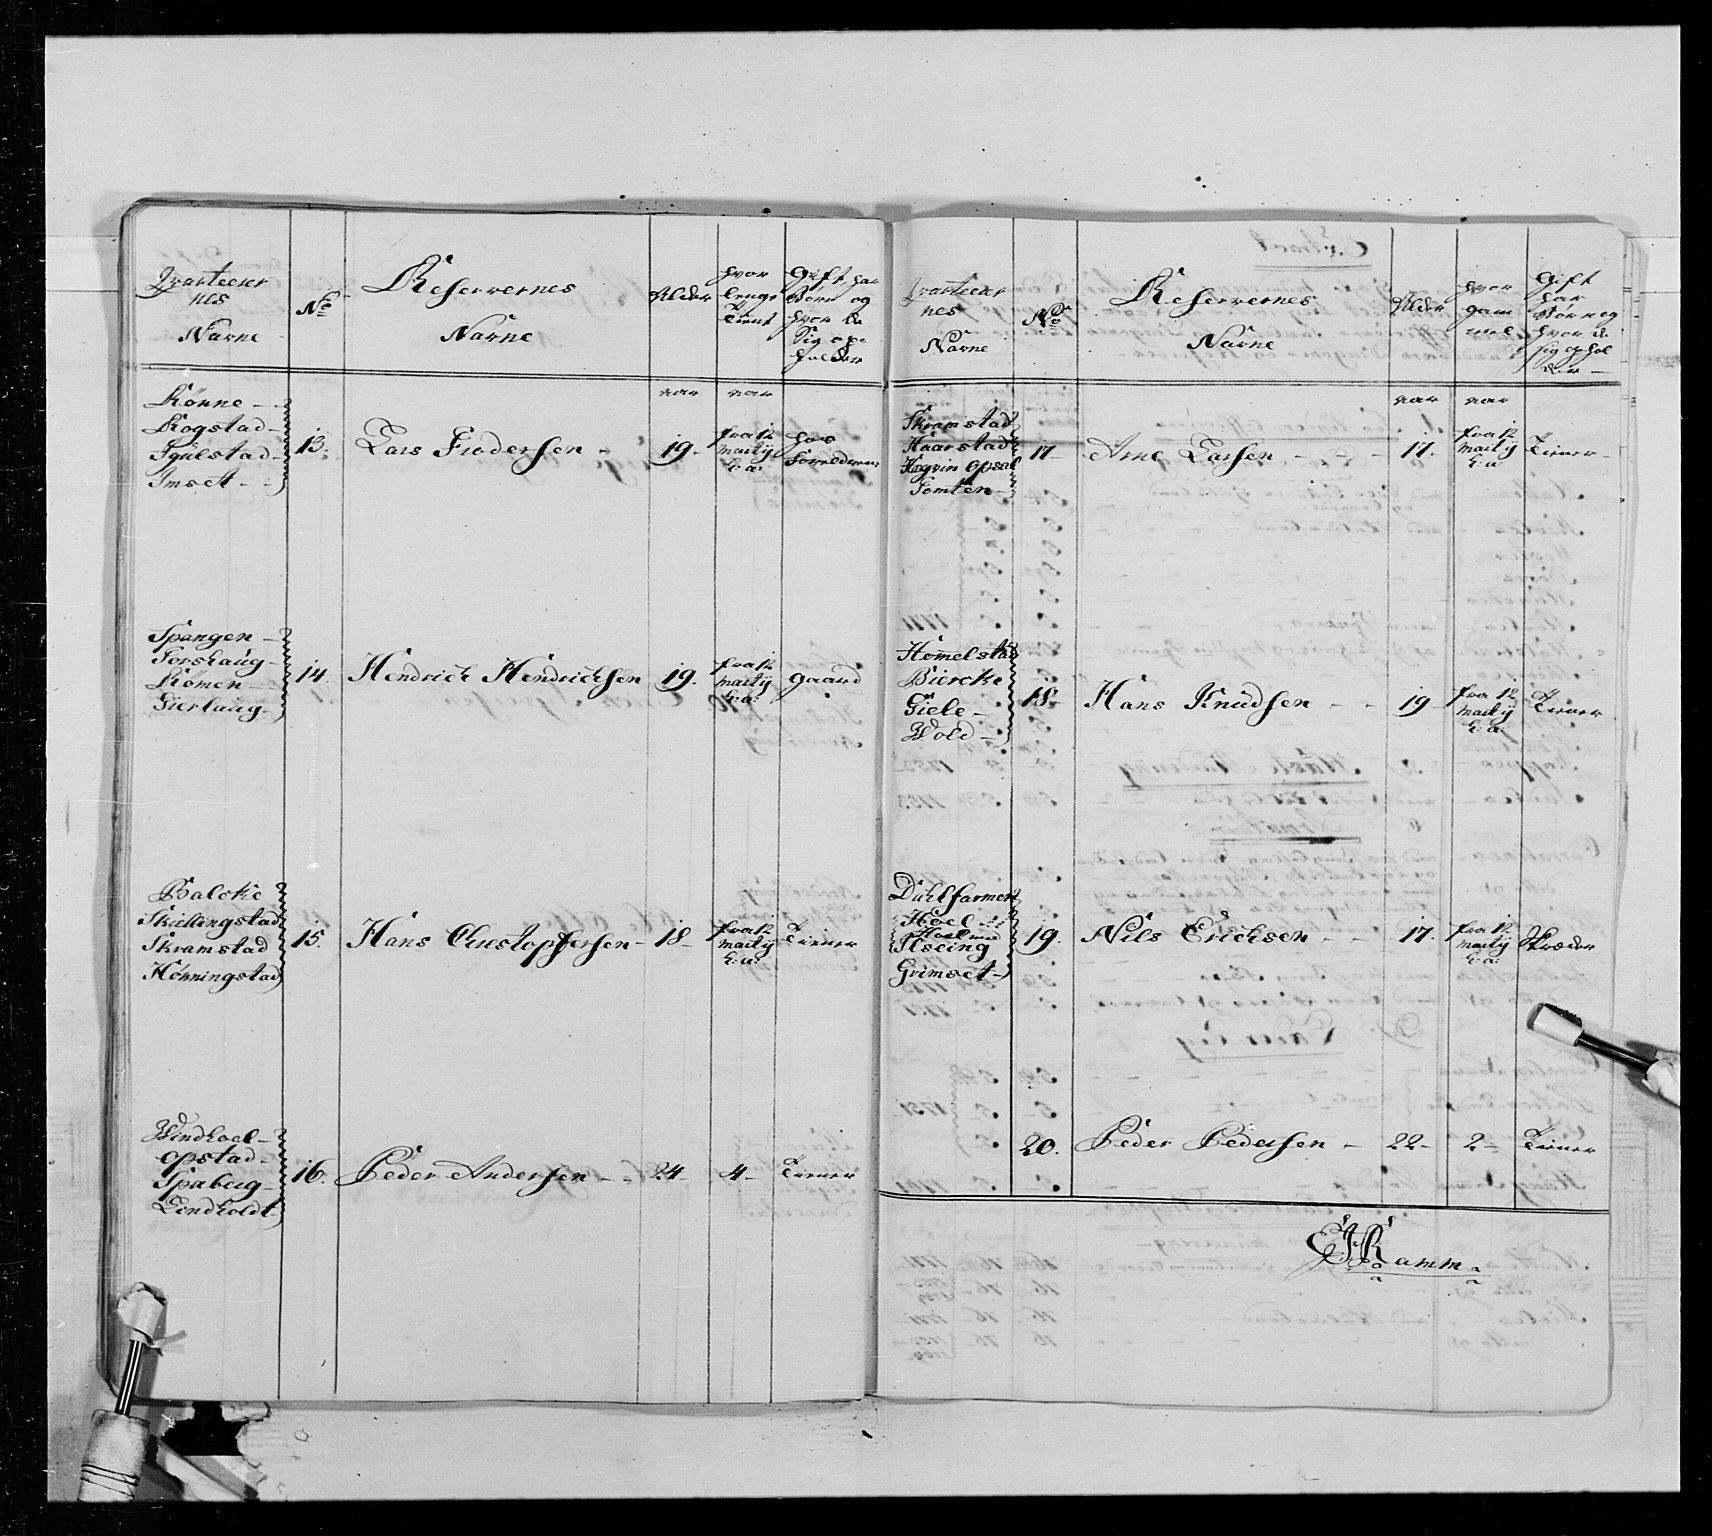 Qvarteer
nes
Navne
No
Reservernes
Navne
Alder
hvor
lenge
Tient
Gift har
Børn og
hvor de
Sig op-
holder
aar
aar
Rønne -
Rogstad -
Igulstad -
Imset -
13.
Lars Frodersen -
19 -
fra 12
Martij
h: a:
hos
Foreldrene
Spangen -
Forshaug -
Rømen -
Gierlaug -
14.
Hendrich Hendrichsen
19.
fra 12
Martij
h: a:
gaard
Balcke
Skiellingstad
Skramstad
Hønningstad
15.
Hans Christophersen -
18 -
fra 12
Martij
h: a:
Tiener
Windhoel -
opstad -
Spaberg -
Lindholdt -
16.
Peder Andersen - -
24
4 -
Tiener
Qvarteer
nes
Navne
No
Reservernes
Navne
Alder
hvor
gam
mel
Gift
har
Børn og
hvor de
sig ophol
der -
aar
aar
Skramstad
Haarstad
Hagvin Opsal
Tomten -
17 -
Arne Larsen - - -
17.
fra 12
Martij
h: a:
Tiener -
Hommelstad
Biercke
Giele -
Wold -
18 -
Hans Knudsen - -
19 -
fra 12
Martij
h: a:
Tiener
Dahlfarmen
Hoel
Hoel
Ilseing
Grimset -
19.
Nils Erichsen - -
17.
fra 12
Martij
h: a:
Skræder
20.
Peder Pedersen -
22 -
2 -
Tiener
Ramm